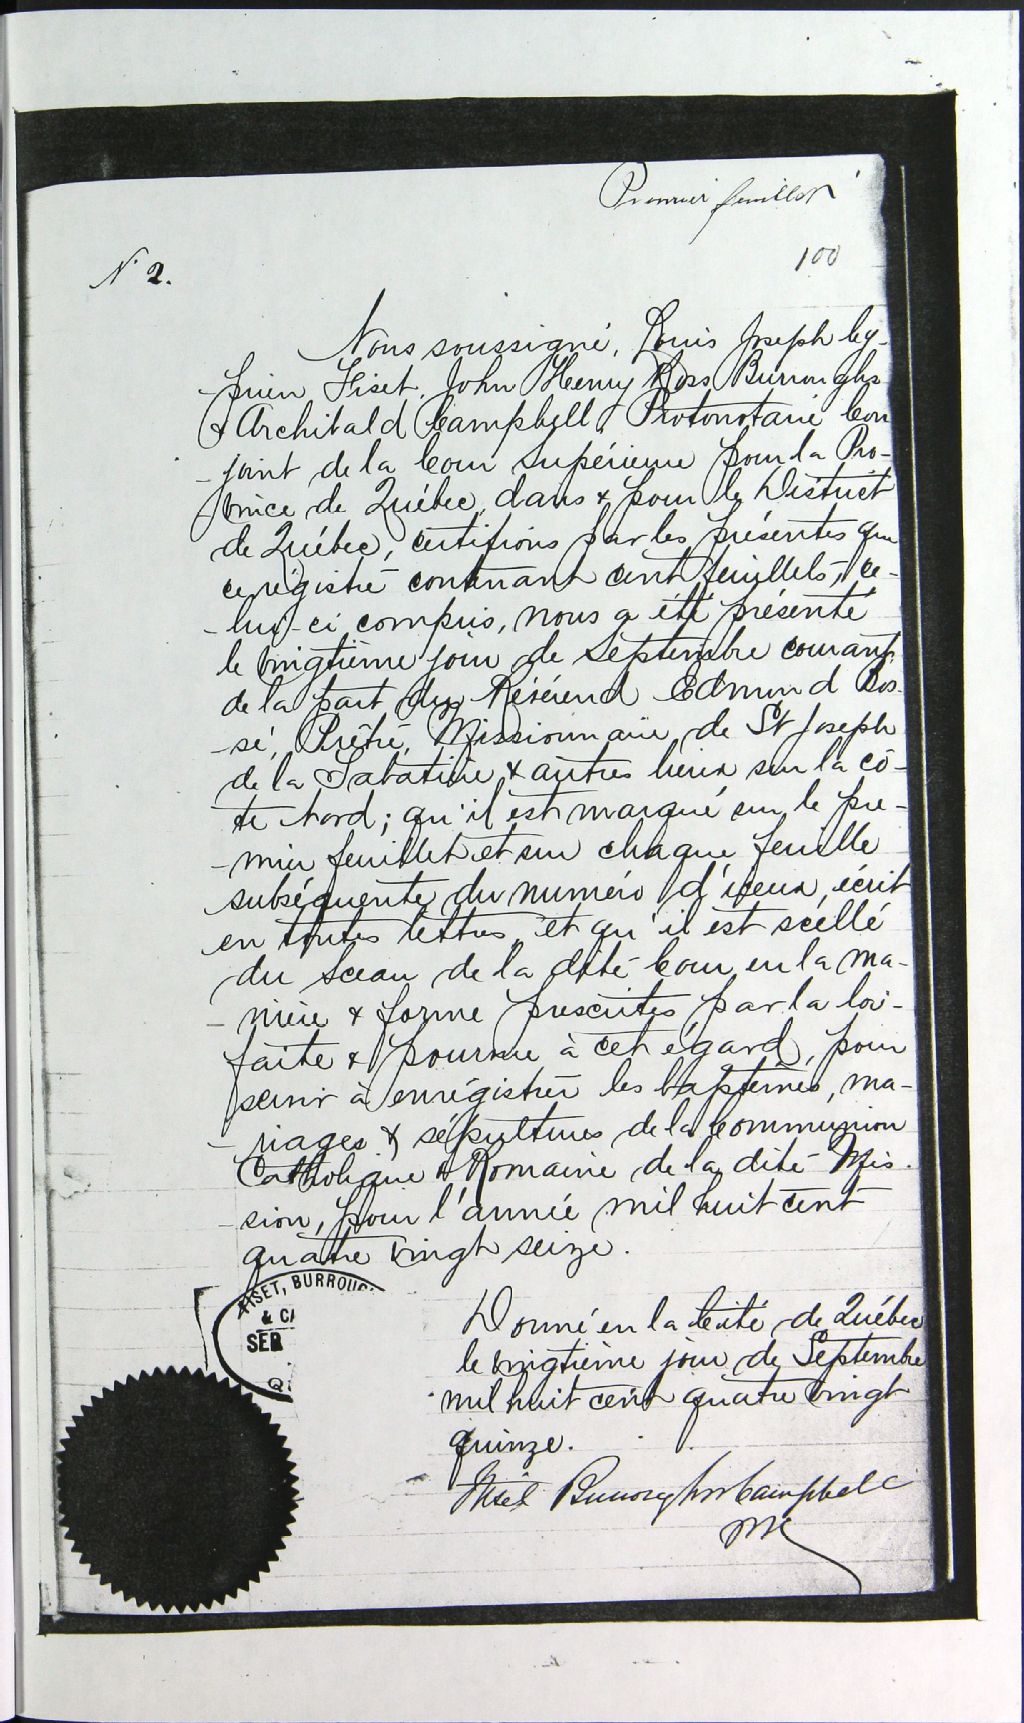 Premier feuillet
100
N° 2.
Nous soussigné, Louis Joseph Cy-
prien Fiset, John Henry Ross Burroughs
& Archibald Campbell, Protonotaire Con
-joint de la Cour Supérieure pour la Pro-
vince de Québec, dans & pour le District
de Québec, certifions par les présentes que
ce régistre contenant cent feuillets, ce-
-lui-ci compris, nous a été présenté
le vingtième jour de Septembre courant,
de la part du Révérend Edmund Bos-
-sé, Prêtre, Missionnaire de St Joseph
de la Tabatière & autres lieux sur la cô-
-te Nord; qu'il est marqué sur le pre-
-mier feuillet et sur chaque feuille
subséquente du numéro d'iceux, écrit
en toutes lettres, et qu'il est scellé
du Sceau de la dite Cour, en la ma-
-nière & forme prescrites par la loi-
faite & pourvue à cet égard, pour
servir à enrégistrer les baptêmes, ma-
-riages & sépultures de la Communion
Catholique & Romaine de la dite Mis-
-sion, pour l'année mil huit cent
quatre vingt seize.
FISET, BURROUG
& CA
SEP
Q
Donné en la Cité de Québec
le vingtième jour de Septembre
mil huit cent quatre vingt
quinze.
Fiset Burroughs Campbell